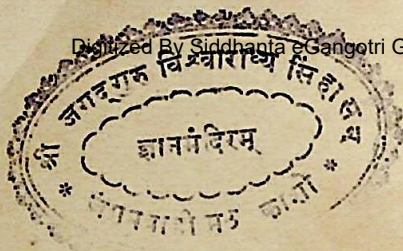 Digitized By Siddhanta eGangotri G
श्री जगद्गुरु विश्वाराध्य सिंहासन
ज्ञानमंदिरम्
* जंगमवाडी मठ काशी *